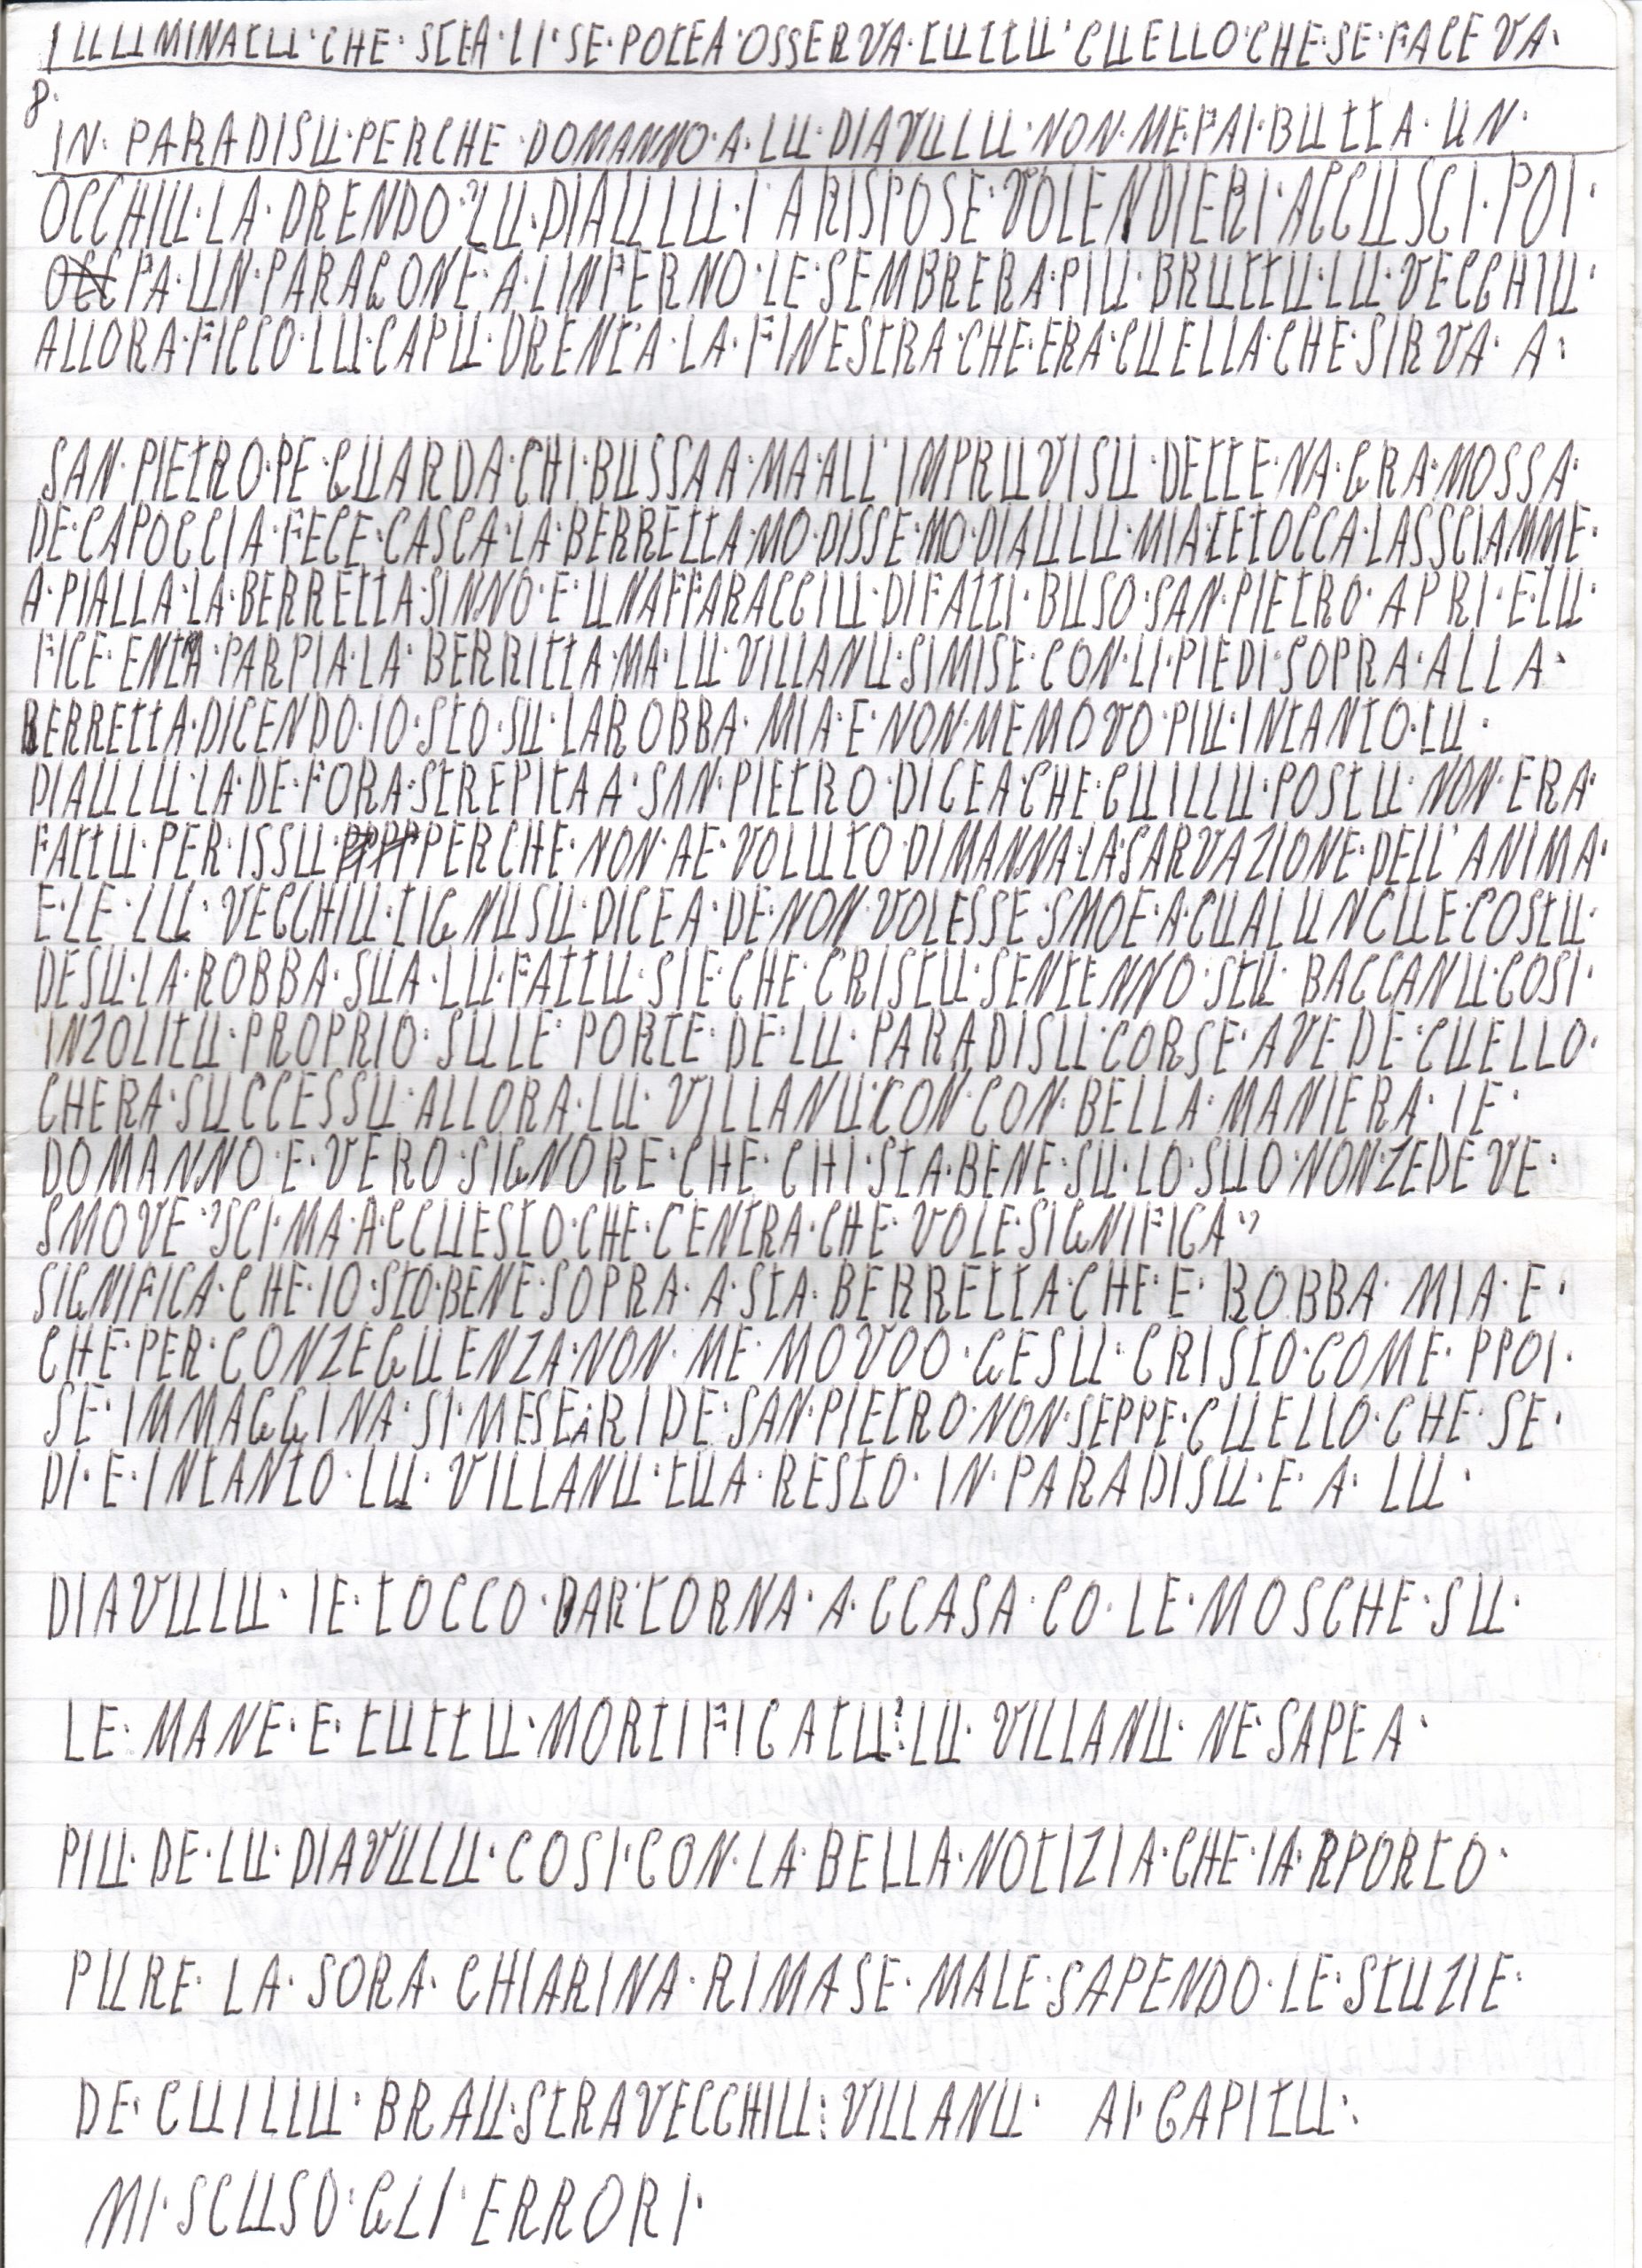 ILLUMINATU·CHE·STEA·LI·SE·POTEA·OSSERVA·TUTTU·CUELLO·CHE·SE·FACEVA·
8·
IN·PARADISU·PERCHE·DOMANNO·A·LU·DIAVULU·NON·ME·FAI·BUTTA·UN·
OCCHIU·LA·DRENDO?LU·DIAULLU·I ARISPOSE·VOLENDIERI·ACCUSCI·POI·
PA·UN·PARAGONE·A·LINFERNO·LE·SEMBRERA·PIU·BRUTTU·LU·VECCHIU·
ALLORA·FICCO·LU·CAPU·DRENT'A·LA·FINESTRA·CHE·ERA·CUELLA·CHE·SIRVA·A·
SAN·PIETRO·PE·GUARDA·CHI·BUSSAA·MA·ALL'IMPRUVISU·DETTE·NA·GRA·MOSSA·
DE·CAPOCCIA·FECE·CASCA·LA·BERRETTA·MO·DISSE·MO·DIAULLU·MIA·TETOCCA·LASSCIAMME·
A·PIALLA·LA·BERRETTA·SINNO·E·UNAFFARACCIU·DIFATTI·BUSO·SAN·PIETRO·APRI·E·LU·
FICE·ENTRA·PARPIA·LA·BERRITTA·MA·LU·VILLANU·SIMISE·CON·LI·PIEDI·SOPRA·ALLA·
BERRETTA·DICENDO·IO·STO·SU·LAROBBA·MIA·E·NON·MEMOVO·PIU·INTANTO·LU·
DIAULLU·LA·DE·FORA·STREPITAA·SAN·PIETRO·DICEA·CHE·CUILLU·POSTU·NON·ERA·
FATTU·PER·ISSU·PERCHE·NON·AE·VOLUTO·DIMANNA·LA·SARVAZIONE·DELL'ANIMA·
E·LE·LU·VECCHIU·TIGNUSU·DICEA·DE·NON·VOLESSE·SMOE·A·CUALUNCUE·COSTU·
DESU·LA·ROBBA·SUA·LU·FATTU·SIE·CHE·CRISTU·SENTENNO·STU·BACCANU·COSI·
INZOLITU·PROPRIO·SULLE·PORTE·DE·LU·PARADISU·CORSE·AVEDE·CUELLO·
CHERA·SUCCESSU·ALLORA·LU·VILLANU·CON·CON·BELLA·MANIERA·IE·
DOMANNO·E·VERO·SIGNORE·CHE·CHI·STA·BENE·SU·LO·SUO·NONZEDEVE·
SMOVE·?SCI·MA·ACCUESTO·CHE·CENTRA·CHE·VOLE·SIGNIFICA·?
SIGNIFICA·CHE·IO·STO·BENE·SOPRA·A·STA·BERRETTA·CHE·E·ROBBA·MIA·E·
CHE·PER·CONZEGUENZA·NON·ME·MOVOO·GESU·CRISTO·COME·PPOI·
SE·IMMAGGINA·SI·MESE·A·RIDE·SAN·PIETRO·NON·SEPPE·CUELLO·CHE·SE·
DI·E·INTANTO·LU·VILLANU·TUA·RESTO·IN·PARADISU·E·A·LU·
DIAVULLU·IE·TOCCO·PAR·TORNA·A·CCASA·CO·LE·MOSCHE·SU·
LE·MANE·E·TUTTU·MORTIFICATU:LU·VILLANU·NE·SAPEA·
PIU·DE·LU·DIAVULU·COSI·CON·LA·BELLA·NOTIZIA·CHE·IA·RPORTO·
PURE·LA·SORA·CHIARINA·RIMASE·MALE·SAPENDO·LE·STUZIE·
DE·CUILLU·BRAU·STRAVECCHIU:VILLANU· AI·CAPITU·
MI·SCUSO·GLI·ERRORI·